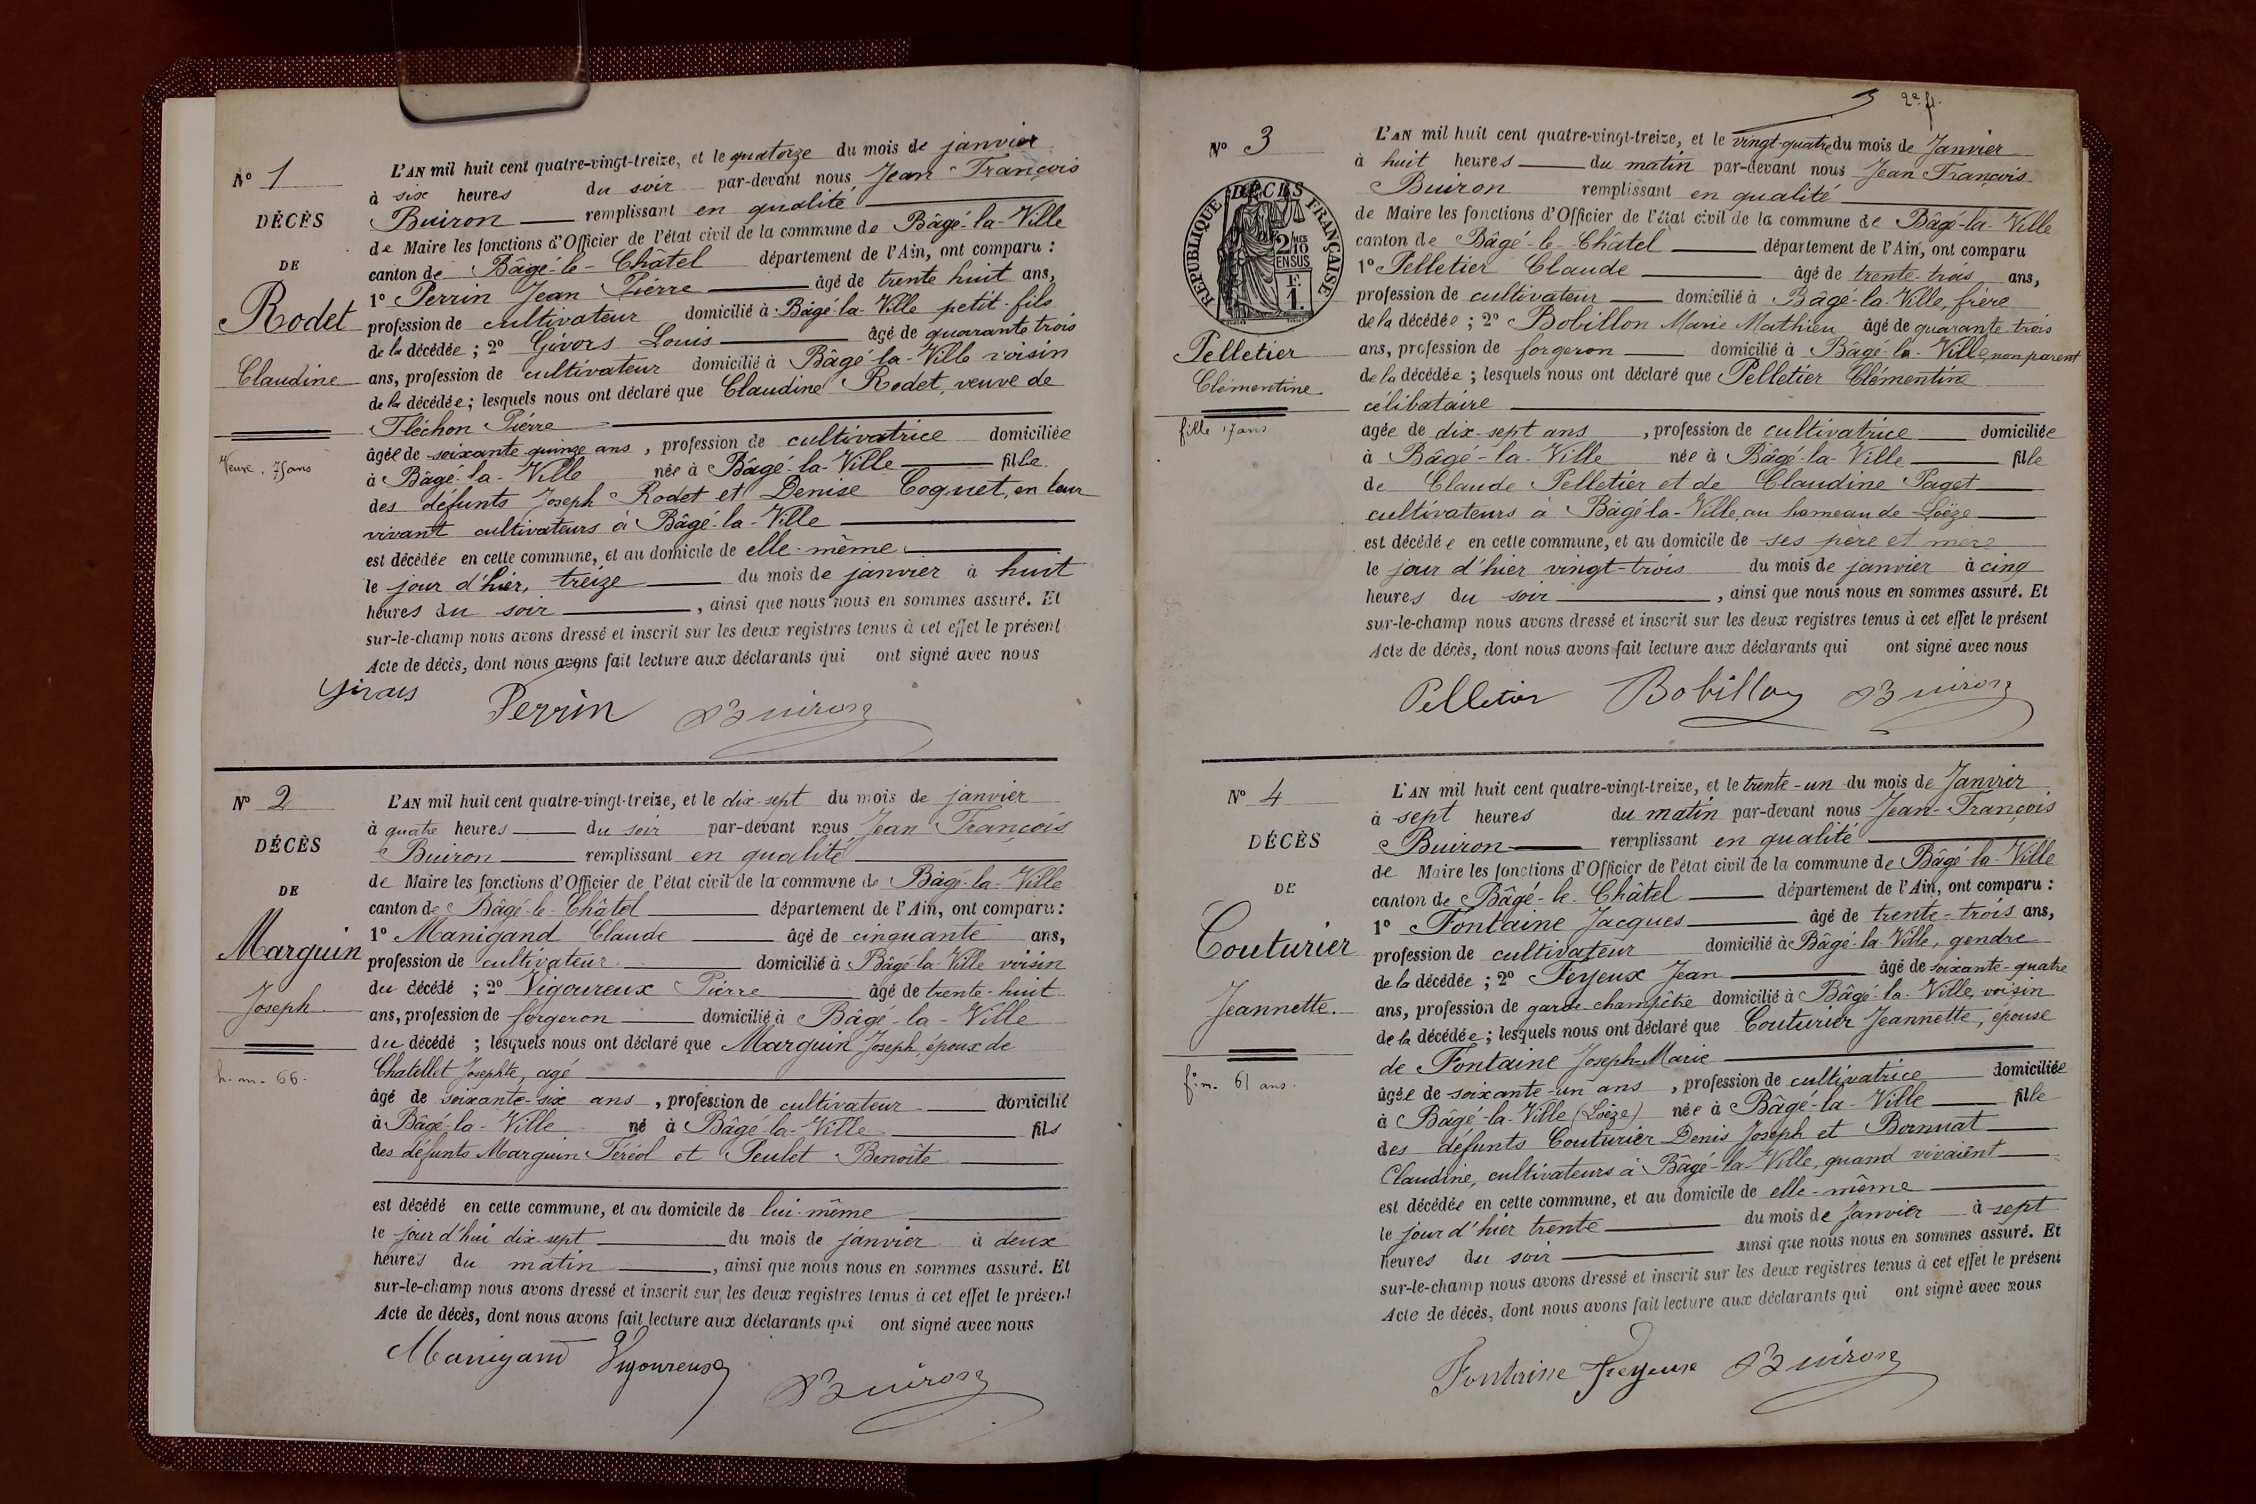 N° 1
DÉCÈS
DE
Rodet
Claudine
Veuve, 75 ans
L'AN mil huit cent quatre-vingt-treize, et le quatorze du mois de janvier
à six heures du soir par-devant nous Jean François
Buiron remplissant en qualité
de Maire les fonctions d'Officier de l'état civil de la commune de Bâgé-la-Ville
canton de Bâgé-le-Châtel département de l'Ain, ont comparu :
1° Perrin Jean Pierre âgé de trente huit ans,
profession de cultivateur domicilié à Bâgé-la-Ville petit-fils
de la décédée ; 2° Givors Louis âgé de quarante trois
ans, profession de cultivateur domicilié à Bâgé-la-Ville voisin
de la décédée ; lesquels nous ont déclaré que Claudine Rodet, veuve de
Fléchon Pierre
âgée de soixante quinze ans, profession de cultivatrice domiciliée
à Bâgé-la-Ville née à Bâgé-la-Ville fille
des défunts Joseph Rodet et Denise Coquet, en leur
vivant cultivateurs à Bâgé-la-Ville
est décédée en cette commune, et au domicile de elle-même
le jour d'hier, treize du mois de janvier à huit
heures du soir, ainsi que nous nous en sommes assuré. Et
sur-le-champ nous avons dressé et inscrit sur les deux registres tenus à cet effet le présent
Acte de décès, dont nous avons fait lecture aux déclarants qui ont signé avec nous
Perrin Buiron
N° 2
DÉCÈS
DE
Marguin
Joseph
h. m. 66.
L'AN mil huit cent quatre-vingt-treize, et le dix-sept du mois de janvier
à quatre heures du soir par-devant nous Jean François
Buiron remplissant en qualité
de Maire les fonctions d'Officier de l'état civil de la commune de Bâgé-la-Ville
canton de Bâgé-le-Châtel département de l'Ain, ont comparu :
1° Manigand Claude âgé de cinquante ans,
profession de cultivateur domicilié à Bâgé-la-Ville voisin
du décédé ; 2° Vigoureux Pierre âgé de trente-huit
ans, profession de forgeron domicilié à Bâgé-la-Ville
du décédé ; lesquels nous ont déclaré que Marguin Joseph, époux de
Chatellet Josephte, agé
âgé de soixante-six ans, profession de cultivateur domicilié
à Bâgé-la-Ville né à Bâgé-la-Ville fils
des défunts Marguin Féréol et Peulet Benoîte
est décédé en cette commune, et au domicile de lui-même
le jour d'hui dix-sept du mois de janvier à deux
heures du matin, ainsi que nous nous en sommes assuré. Et
sur-le-champ nous avons dressé et inscrit sur les deux registres tenus à cet effet le présent
Acte de décès, dont nous avons fait lecture aux déclarants qui ont signé avec nous
Manigand Vigoureux
Buiron
3 2e f.
N° 3
DÉCÈS
RÉPUBLIQUE FRANÇAISE
2/10 MES
EN SUS
F.
1.
Pelletier
Clémentine
fille 17 ans
L'AN mil huit cent quatre-vingt-treize, et le vingt-quatre du mois de Janvier
à huit heures du matin par-devant nous Jean François
Buiron remplissant en qualité
de Maire les fonctions d'Officier de l'état civil de la commune de Bâgé-la-Ville
canton de Bâgé-le-Châtel département de l'Ain, ont comparu
1° Pelletier Claude âgé de trente-trois ans,
profession de cultivateur domicilié à Bâgé-la-Ville, frère
de la décédée ; 2° Bobillon Marie Mathieu âgé de quarante-trois
ans, profession de forgeron domicilié à Bâgé-la-Ville, non parent
de la décédée ; lesquels nous ont déclaré que Pelletier Clémentine
célibataire
agée de dix-sept ans, profession de cultivatrice domiciliée
à Bâgé-la-Ville née à Bâgé-la-Ville fille
de Claude Pelletier et de Claudine Paget
cultivateurs à Bâgé-la-Ville, au hameau de Loëze
est décédée en cette commune, et au domicile de ses père et mère
le jour d'hier vingt-trois du mois de janvier à cinq
heures du soir, ainsi que nous nous en sommes assuré. Et
sur-le-champ nous avons dressé et inscrit sur les deux registres tenus à cet effet le présent
Acte de décès, dont nous avons fait lecture aux déclarants qui ont signé avec nous
Pelletier Bobillon Buiron
N° 4
DÉCÈS
DE
Couturier
Jeannette.
f. m. 61 ans.
L'AN mil huit cent quatre-vingt-treize, et le trente-un du mois de Janvier
à sept heures du matin par-devant nous Jean-François
Buiron remplissant en qualité
de Maire les fonctions d'Officier de l'état civil de la commune de Bâgé-la-Ville
canton de Bâgé-le-Châtel département de l'Ain, ont comparu :
1° Fontaine Jacques âgé de trente-trois ans,
profession de cultivateur domicilié à Bâgé-la-Ville, gendre
de la décédée ; 2° Feyeux Jean âgé de soixante-quatre
ans, profession de garde-champêtre domicilié à Bâgé-la-Ville, voisin
de la décédée ; lesquels nous ont déclaré que Couturier Jeannette, épouse
de Fontaine Joseph-Marie
âgée de soixante-un ans, profession de cultivatrice domiciliée
à Bâgé-la-Ville (Loëze) née à Bâgé-la-Ville fille
des défunts Couturier Denis Joseph et Bornuat
Claudine, cultivateurs à Bâgé-la-Ville, quand vivaient
est décédée en cette commune, et au domicile de elle-même
le jour d'hier trente du mois de Janvier à sept
heures du soir ainsi que nous nous en sommes assuré. Et
sur-le-champ nous avons dressé et inscrit sur les deux registres tenus à cet effet le présent
Acte de décès, dont nous avons fait lecture aux déclarants qui ont signé avec nous
Fontaine Feyeux Buiron